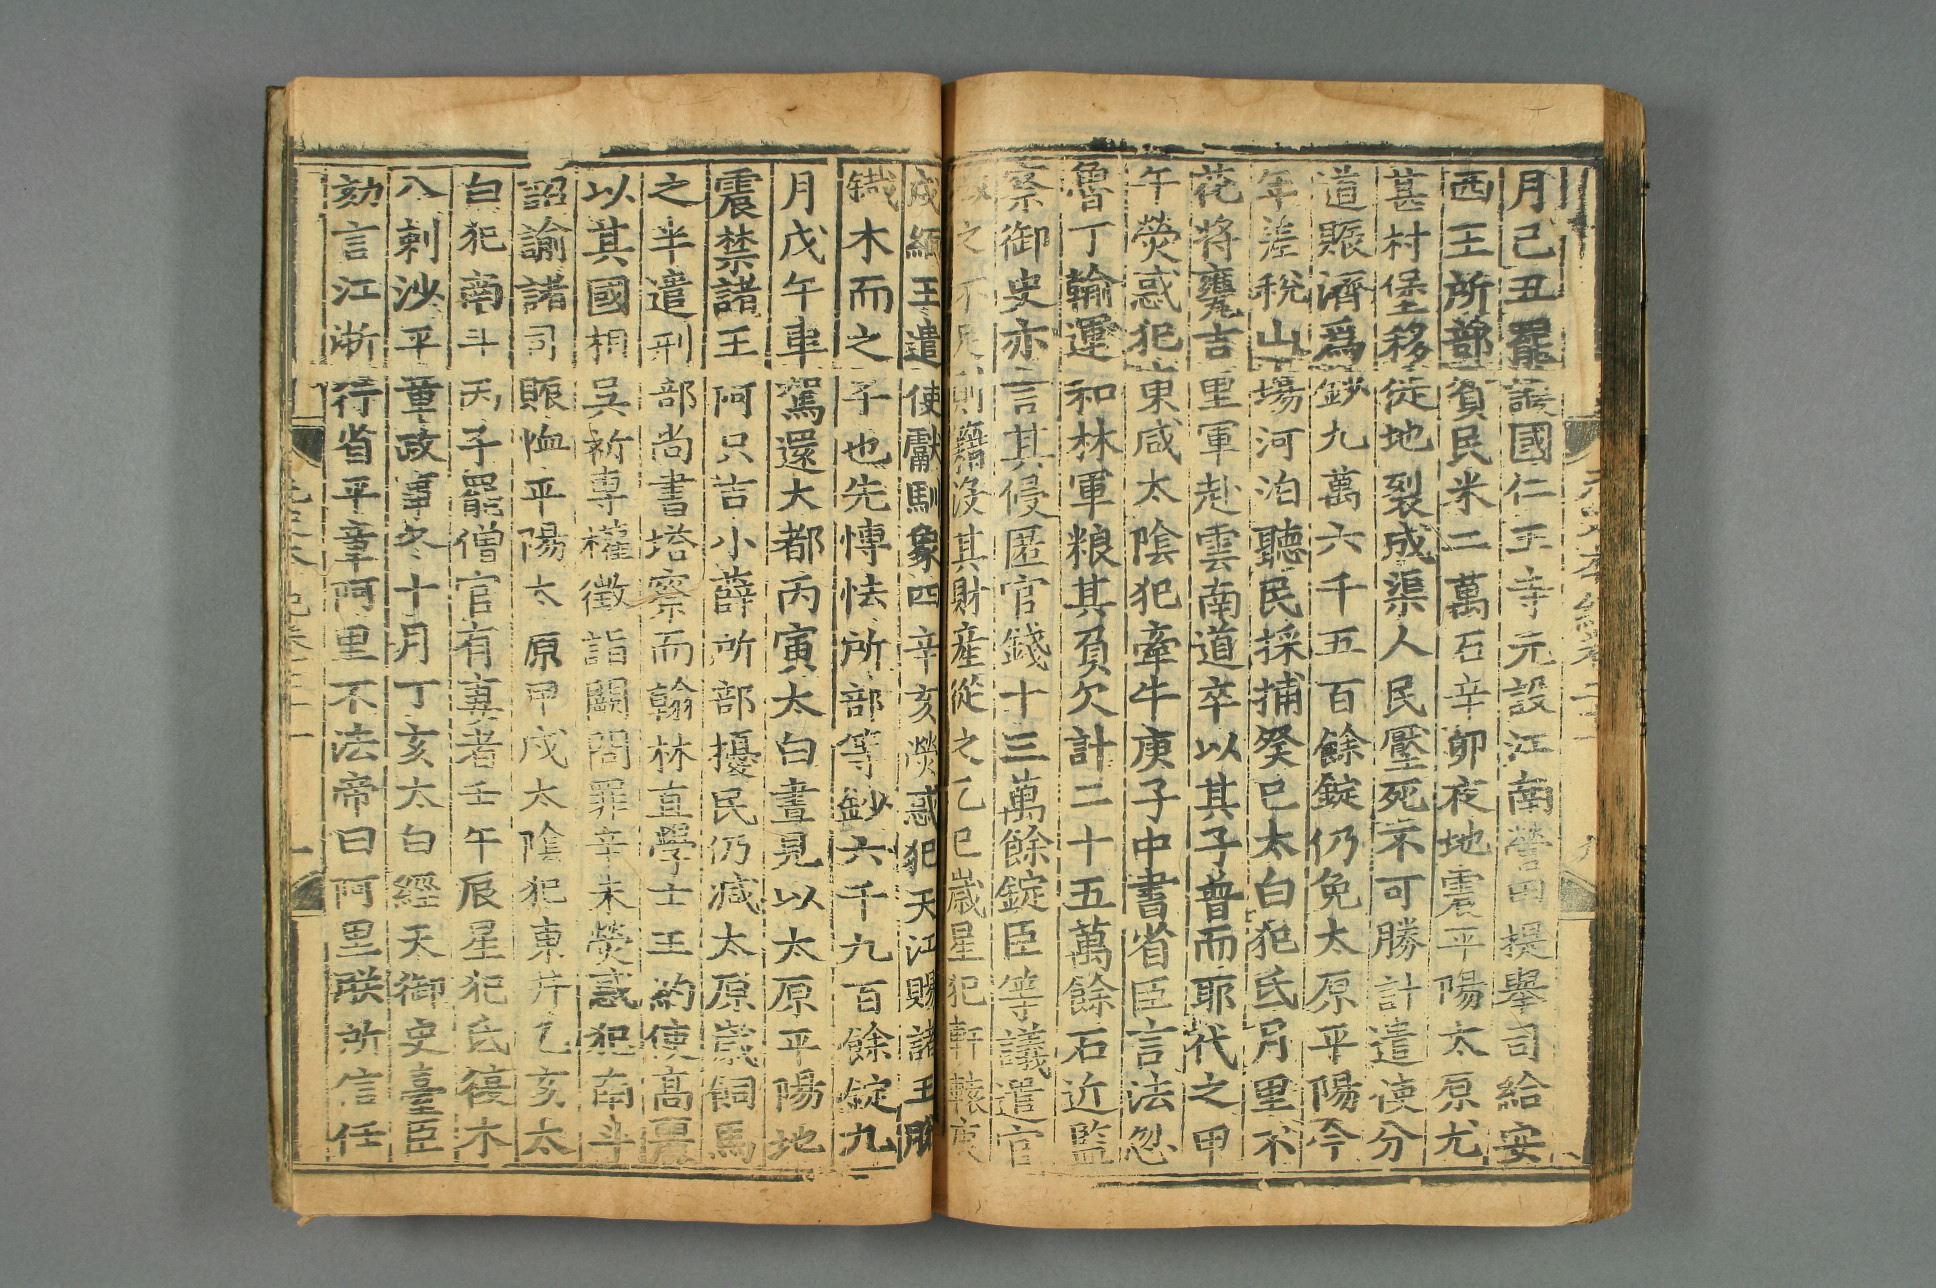 元史本紀卷二十一
月己丑罷護國仁王寺元設江南營田提舉司給安
西王所部貧民米二萬石辛卯夜地震平陽太原尤
甚村堡移徙地裂成渠人民壓死不可勝計遣使分
道賑濟爲鈔九萬六千五百餘錠仍免太原平陽今
年差稅山場河泊聽民採捕癸巳太白犯氐月里不
花將甕吉里軍赴雲南道卒以其子普而耶代之甲
午熒惑犯東咸太陰犯牽牛庚子中書省臣言法忽
魯丁輸運和林軍粮其負欠計二十五萬餘石近監
察御史亦言其侵匿官錢十三萬餘錠臣等議遣官
之不足則籍沒其財產從之乙巳歲星犯軒轅庚
戌緬王遣使獻馴象四辛亥熒惑犯天江賜諸王脫
鐵木而之子也先博怯所部等鈔六千九百餘錠九
月戊午車駕還大都丙寅太白晝見以太原平陽地
震禁諸王阿只吉小薛所部擾民仍減太原歲飼馬
之半遣刑部尚書塔察而翰林直學士王約使高麗
以其國相吳祈專權徵詣闕問罪辛未熒惑犯南斗
詔諭諸司賑恤平陽太原甲戌太陰犯東井乙亥太
白犯南斗丙子罷僧官有妻者壬午辰星犯氐復木
八剌沙平章政事冬十月丁亥太白經天御史臺臣
劾言江浙行省平章阿里不法帝曰阿里朕所信任
元史本紀卷二十一